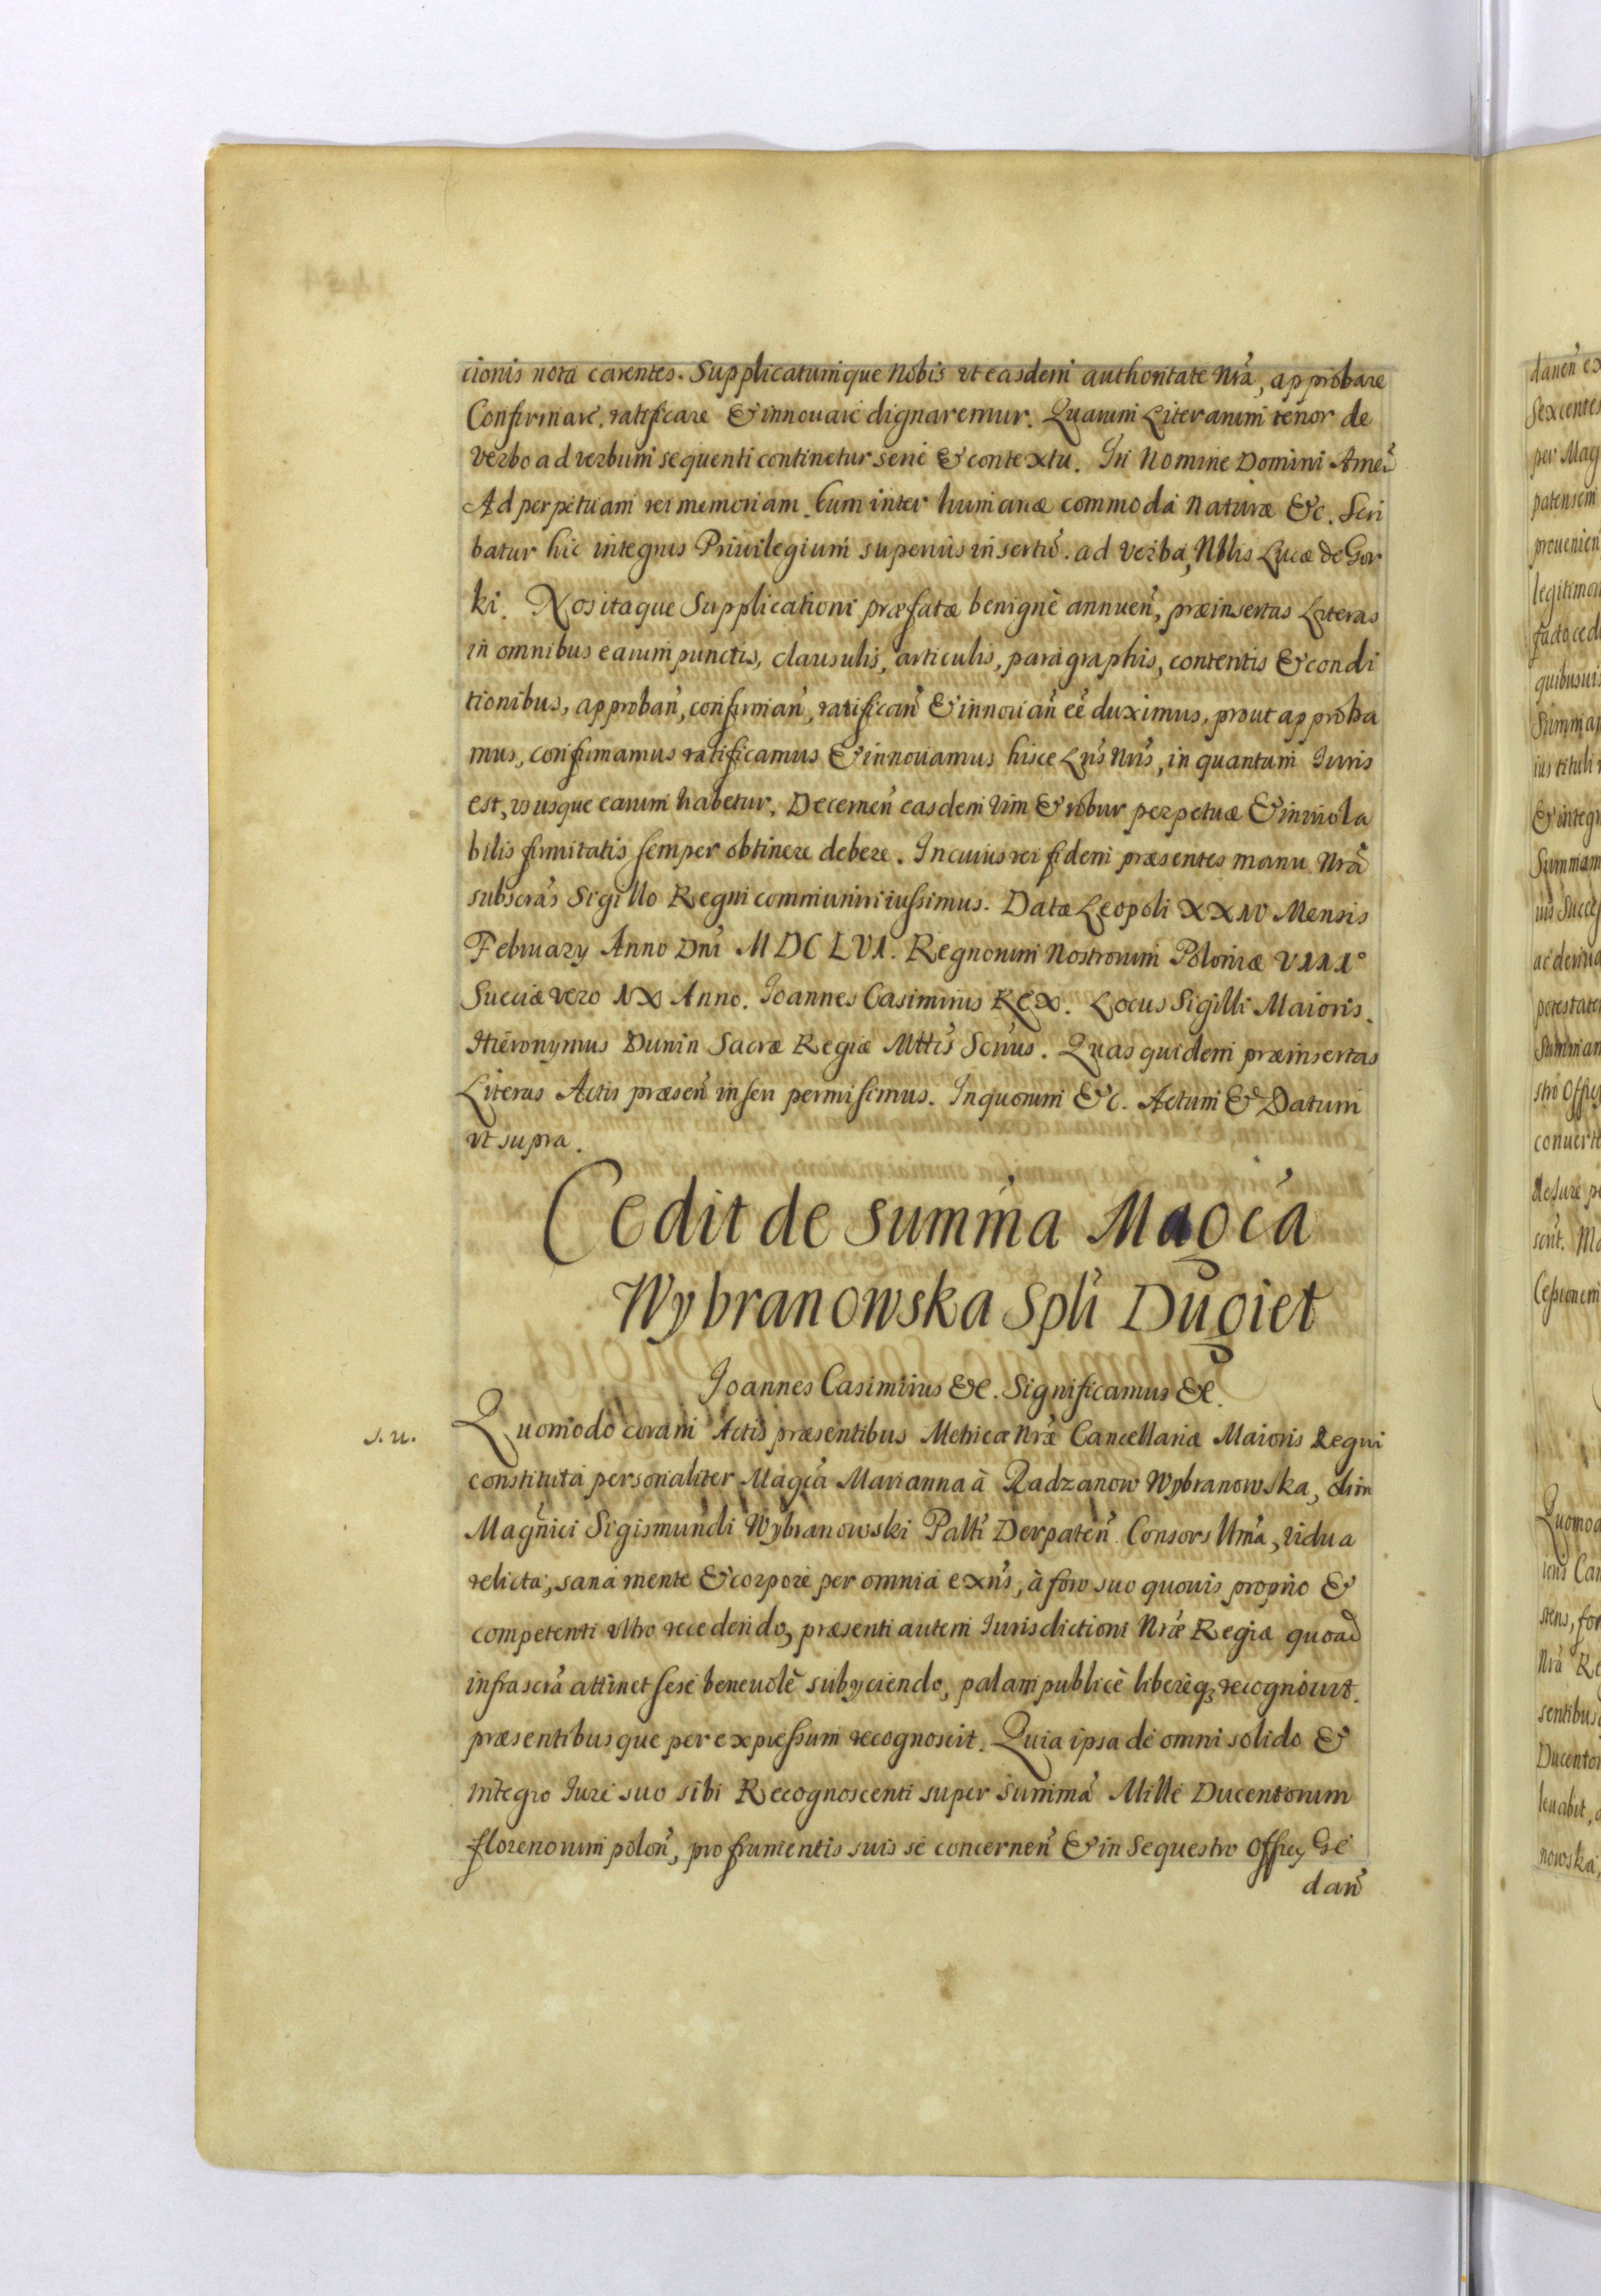 cionis nota carentes. Supplicatumque Nobis vt easdem authoritate Nrã, approbare
Confirmare, ratificare & innouare dignaremur. Quarum Literarum tenor de
verbo ad verbum sequenti continetur serie & contextu. In Nomine Domini Ameñ
Ad perpetuam rei memoriam. Cum inter humanæ commoda naturæ &c. Scri
batur hic integrus Priuilegium superius insertũ. ad verba, Nblis Lucæ de Gor
ki. Nos itaque Supplicationi præfatæ benignè annueñ, præinsertas Literas
in omnibus earum punctis, clausulis, articulis, paragraphis, contentis & condi
tionibus, approbañ, confirmañ, ratificañ & innouañ eẽ duximus, prout approba
mus, confirmamus ratificamus & innouamus hisce Lris Nris, in quantum Iuris
est, vsusque earum habetur. Decerneñ easdem vim & robur perpetuæ & inuiola
bilis firmitatis semper obtinere debere. In cuius rei fidem præsentes manu Nrã
subscras Sigillo Regni communiri iussimus. Datæ Leopoli XXIV Mensis
February Anno Dni MDCLVI. Regnorum Nostrorum Poloniæ VIII°
Sueciæ vero IX Anno. Ioannes Casimirus Rex. Locus Sigilli Maioris.
Hieronymus Dunin Sacræ Regiæ Mttis Scrius. Quas quidem præinsertas
Literas Actis præseñ inseri permisimus. In quorum &c. Actum & Datum
vt supra.
Cedit de summa Magca
Wybranowska Spli Dugiet
Ioannes Casimirus &c. Significamus &c.
s. u.
Quomodo coram Actis præsentibus Metricæ Nræ Cancellariæ Maioris Regni
constituta personaliter Magca Marianna à Radzanow Wybranowska, olim
Magnici Sigismundi Wybranowski Palti Derpateñ Consors Ltma, vidua
relicta, sana mente & corpore per omnia exns, à foro suo quouis proprio &
competenti vltro recedendo, præsenti autem Iurisdictioni Nræ Regiæ quoad
infrascra attinet sese beneuolè subyciendo, palam publicè liberèq; recognouit.
præsentibusque per expressum recognoscit. Quia ipsa de omni solido &
integro Iure suo sibi Recognoscenti super summa Mille Ducentorum
florenorum poloñ, pro frumentis suis se concerneñ & in Sequestro Offcy Ge
dañ